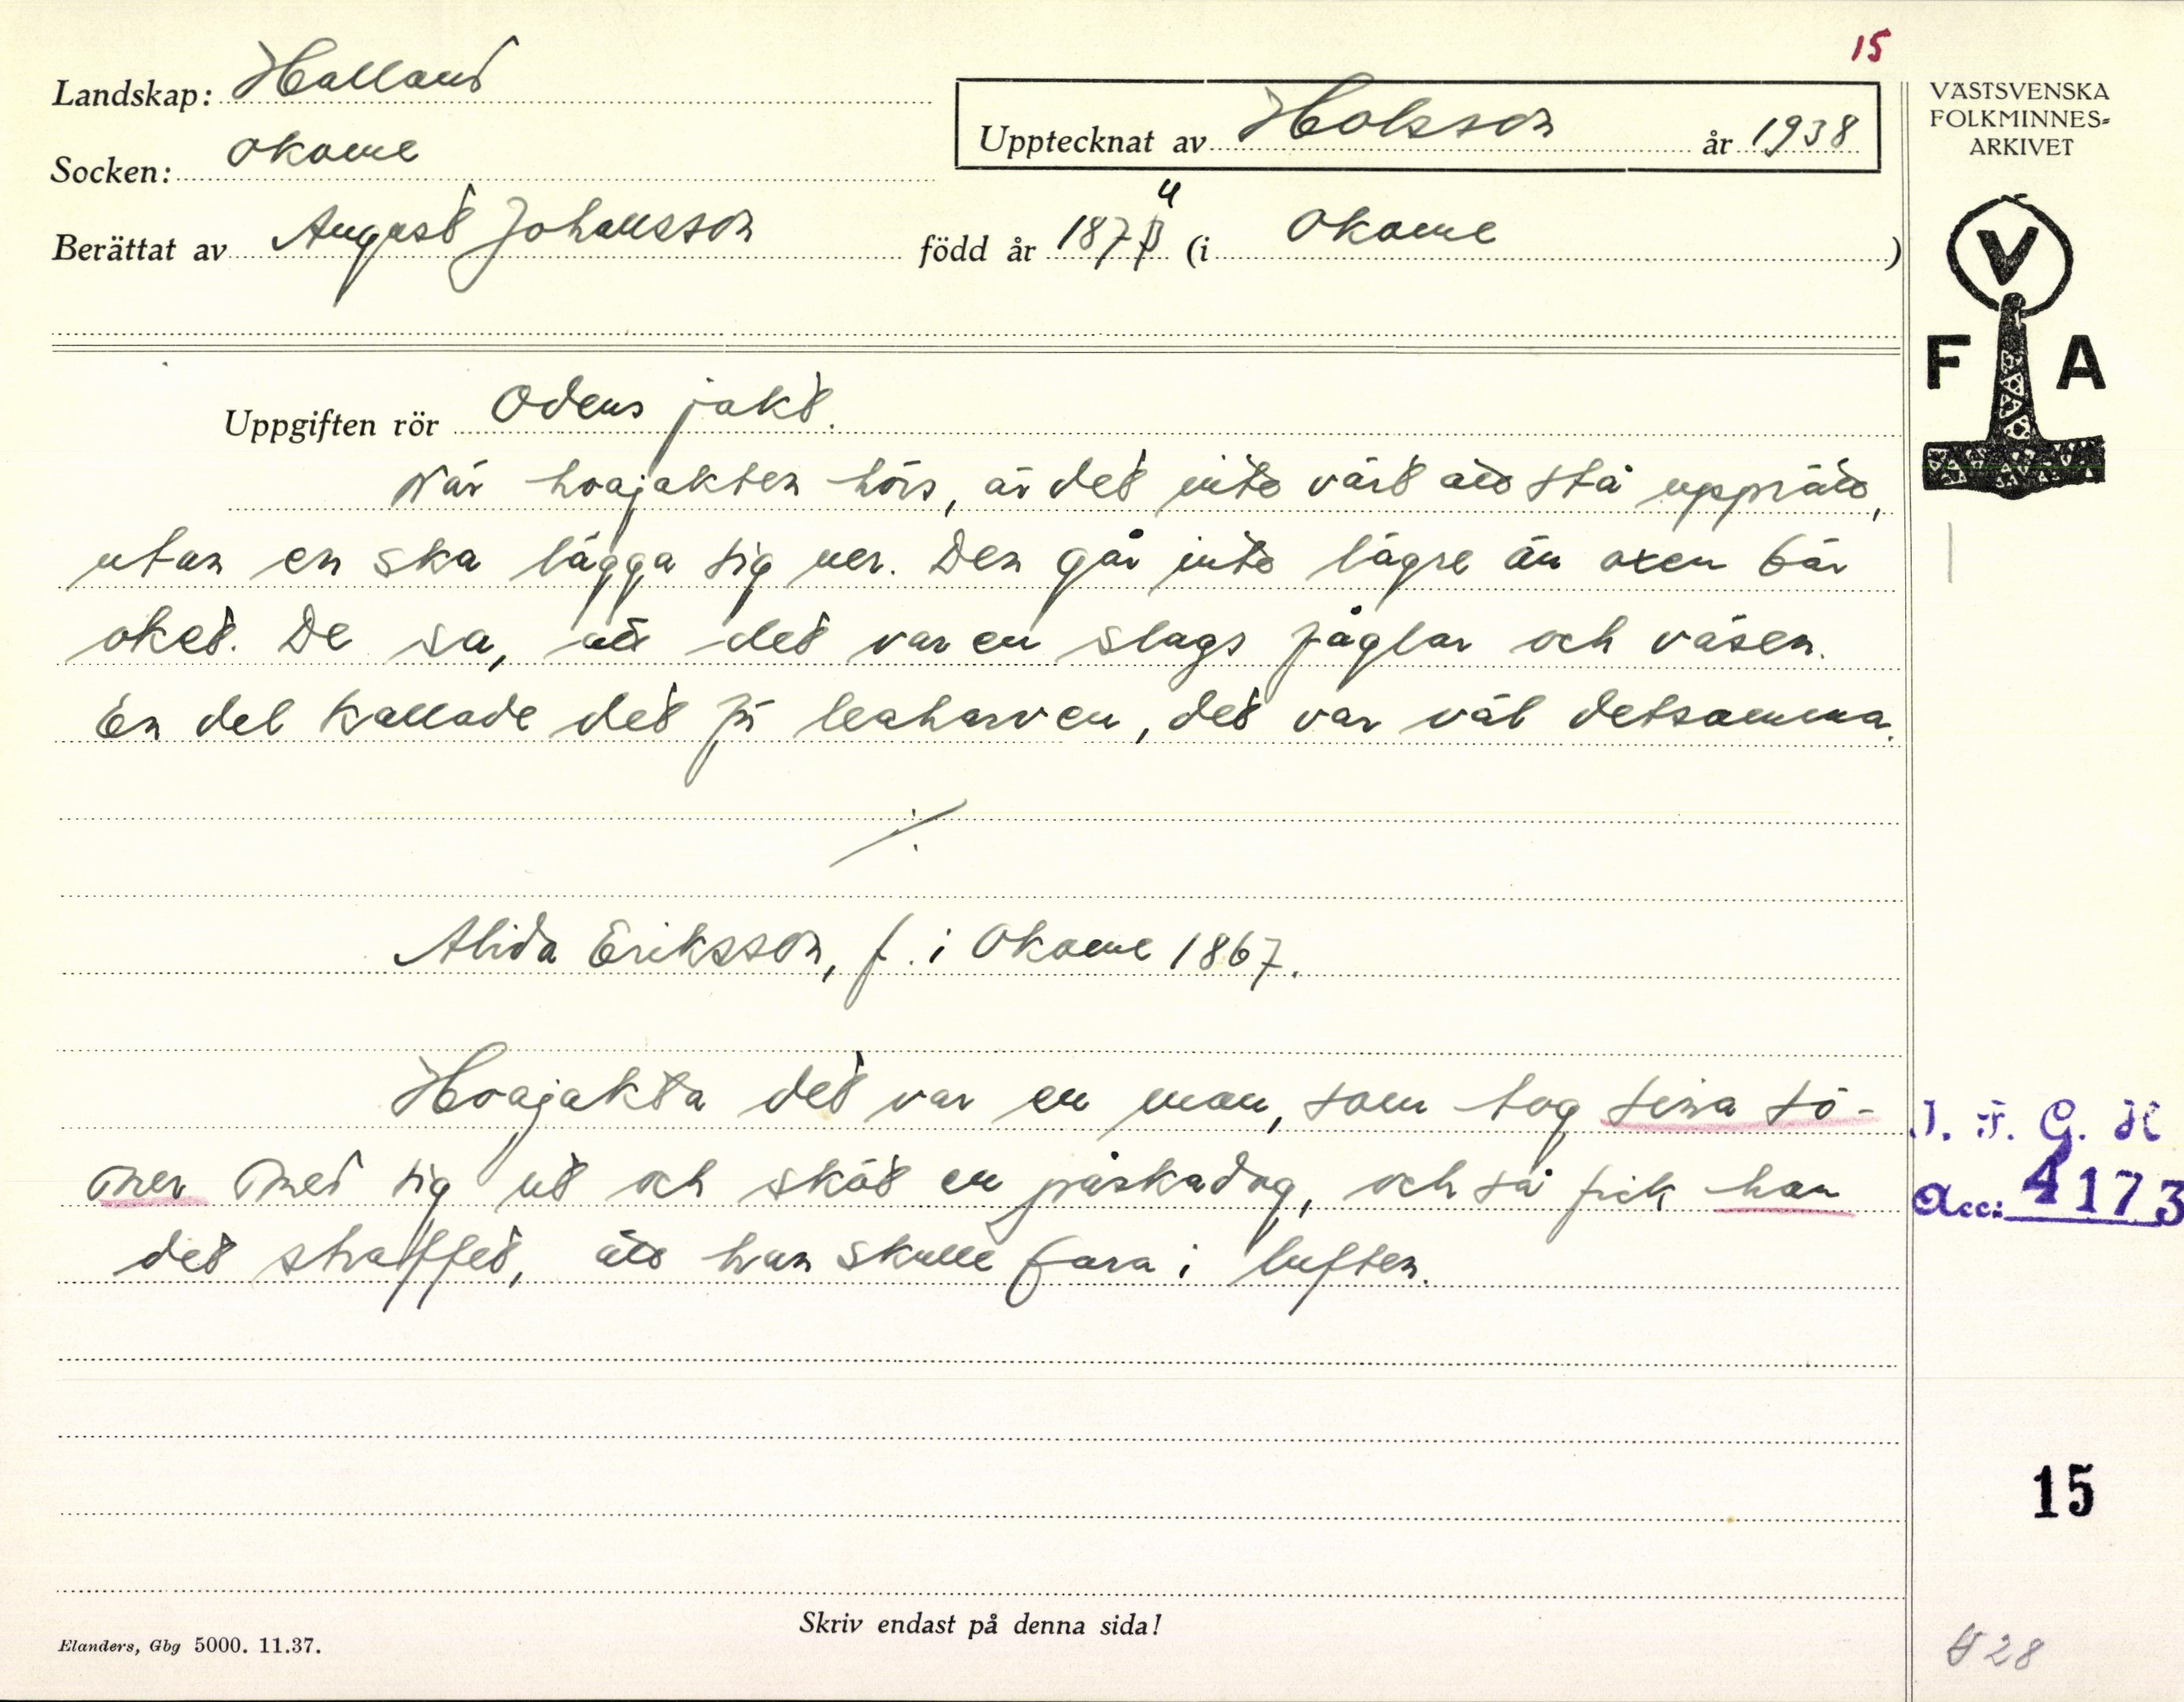 15
Landskap: Halland
Socken: Okome
Upptecknat av Holsson år 1938
Berättat av August Johansson född år 187 4 (i Okome )
VÄSTSVENSKA
FOLKMINNES-
ARKIVET
V
F A
Uppgiften rör Odens jakt.
När hoajakten hörs, är det inte värt att stå upprätt,
utan en ska lägga sig ner. Den går inte lägre än oxen bär
oket. De sa, att det var en slags fåglar och väsen.
En del kallade det för leaharven, det var väl detsamma.
Alida Eriksson, f. i Okome 1867.
Hoajakta det var en man, som tog sina sö-
ner med sig ut och sköt en påskadag, och så fick han
det straffet, att han skulle fara i luften.
I. F. G. H
Acc: 4173
15
Skriv endast på denna sida!
Elanders, Gbg 5000. 11.37.
28